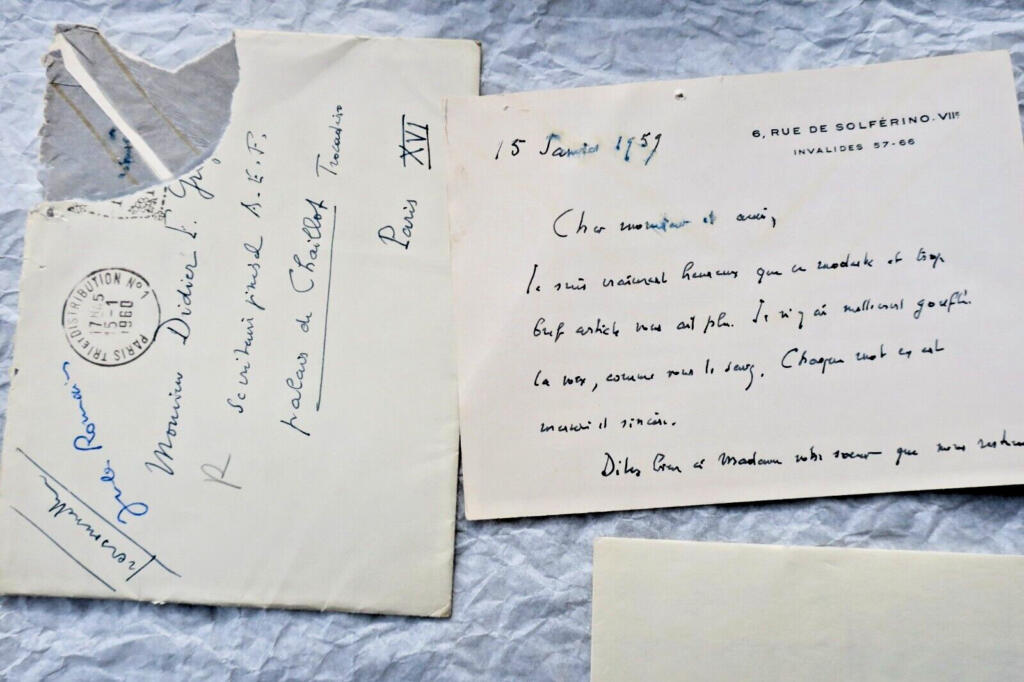 Jules Romains
personnelle
PARIS TRI et DISTRIBUTION Nº 1
17H45
15-1
1960
Monsieur Didier
Secrétaire général A.E.F.
palais de Chaillot Trocadéro
Paris XVI
R
15 Janvier 1959
6, RUE DE SOLFÉRINO. VIIe
INVALIDES 57-66
Cher monsieur et ami,
Je suis vraiment heureux que ce modeste et trop
bref article vous ait plu. Je n'y ai nullement gonflé
la voix, comme vous le savez. Chaque mot en est
mesuré et sincère.
Dites bien à Madame votre soeur que nous